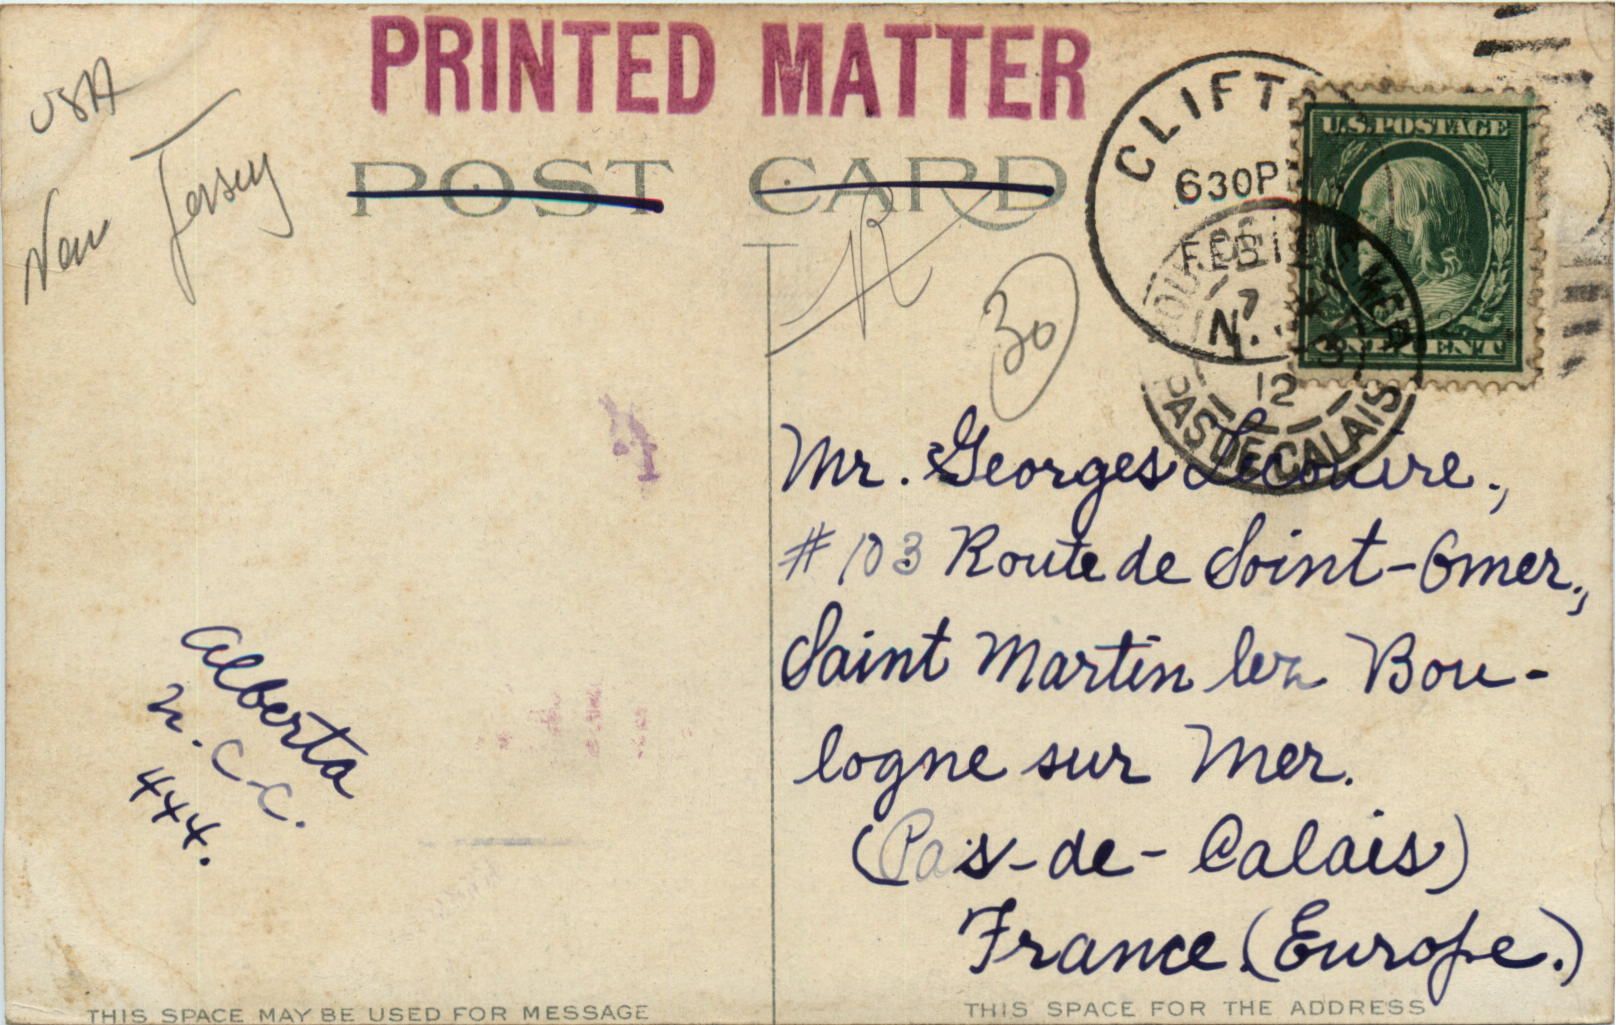 PRINTED MATTER
USA
New Jersey
POST CARD
CLIFTON
630PM
FEB 12
N.J.
U.S. POSTAGE
ONE CENT
12
PAS DE CALAIS
30
Mr. Georges Lecouvre.,
#103 Route de Saint-Omer.,
Saint Martin lez Bou-
logne sur Mer.
(Pas-de-Calais)
France.(Europe.)
Alberta
N.C.C.
444.
THIS SPACE MAY BE USED FOR MESSAGE
THIS SPACE FOR THE ADDRESS